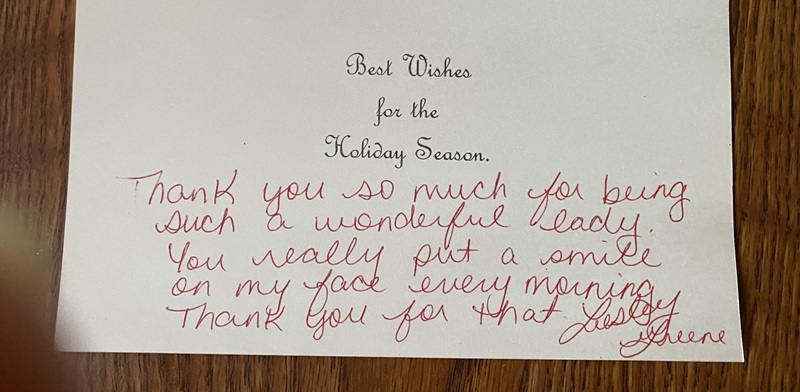 Best Wishes
for the
Holiday Season.
Thank you so much for being
such a wonderful lady.
You really put a smile
on my face every morning
Thank you for that. Lesley
Greene